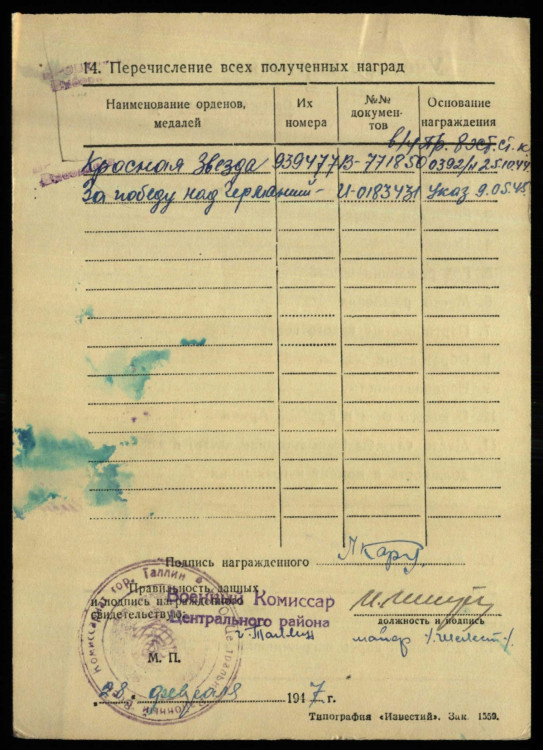 14. Перечисление всех полученных наград
Наименование орденов, медалей
Их номера
№№ документов
Основание награждения
в/ч Пр. 8 эст. ст. к
Красная Звезда 939477 В-771850 0392/н 25.10.44
За победу над Германией - И-0183431 Указ 9.05.45
Подпись награжденного
Правильность данных
и подпись награжденного
свидетельствую:
Военный Комиссар
Центрального района
г. Таллин
должность и подпись
майор /Шелест/
М. П.
28 февраля 1947 г.
Типография «Известий». Зак. 1559.